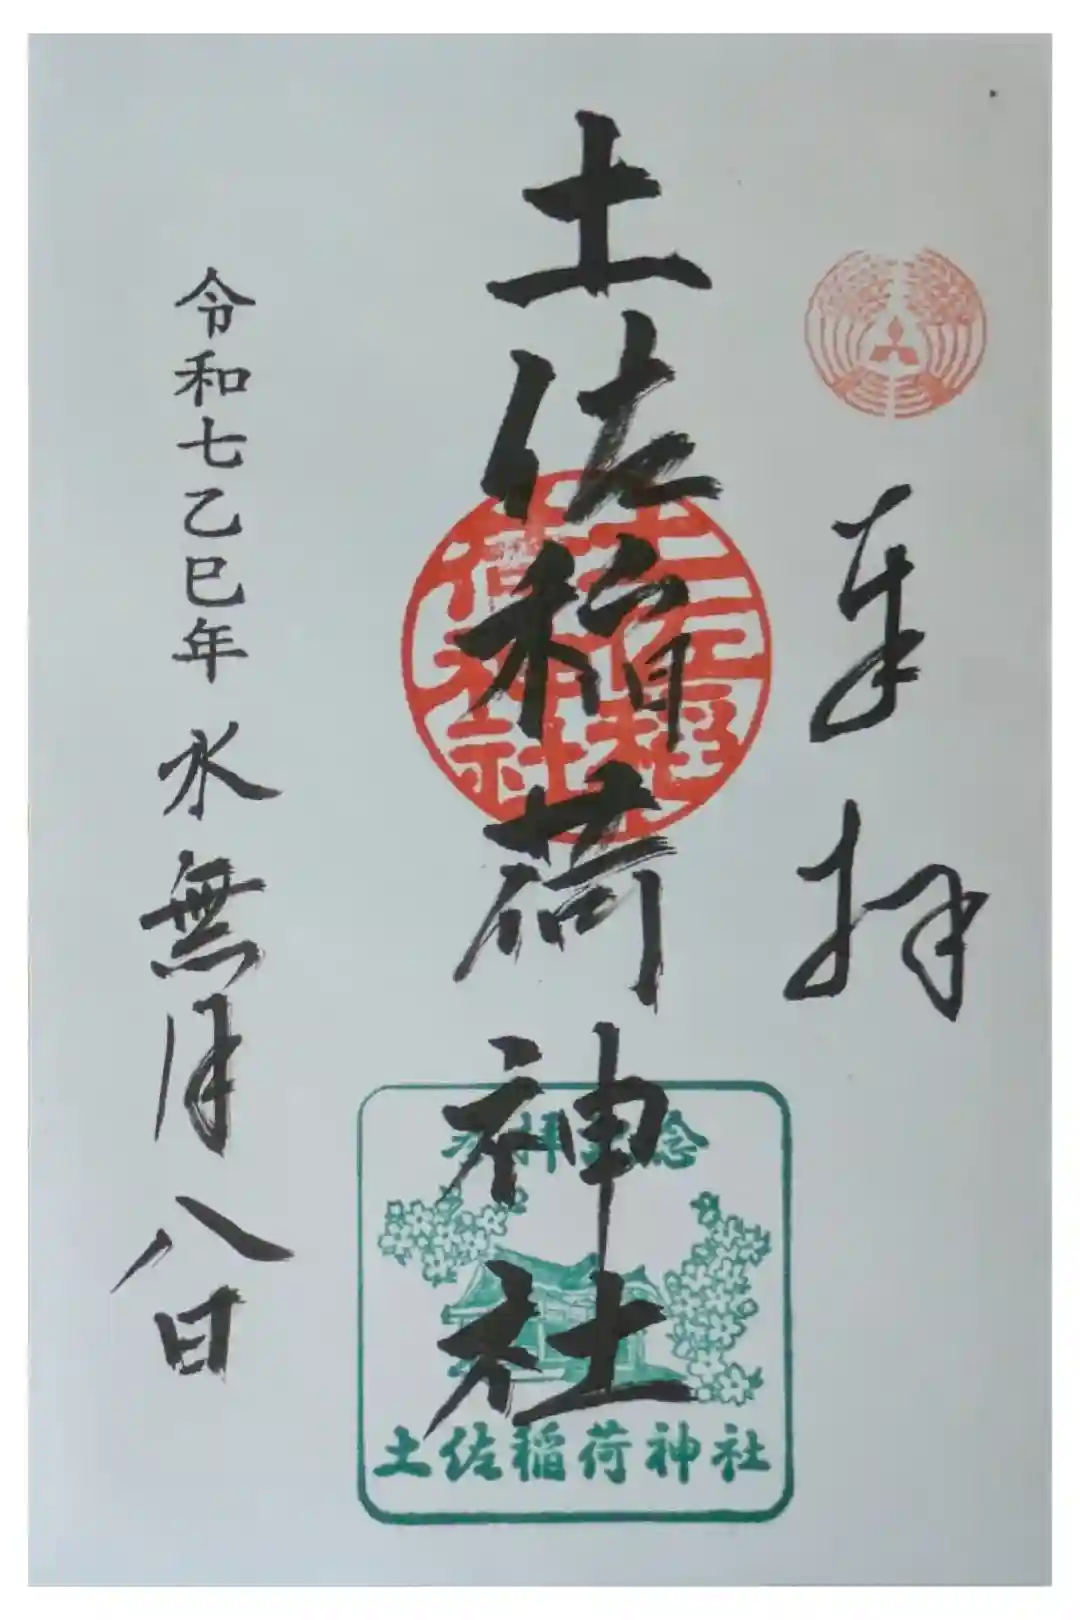 奉拝
土佐稲荷神社
土佐稲荷神社
参拝記念
土佐稲荷神社
令和七乙巳年 水無月八日